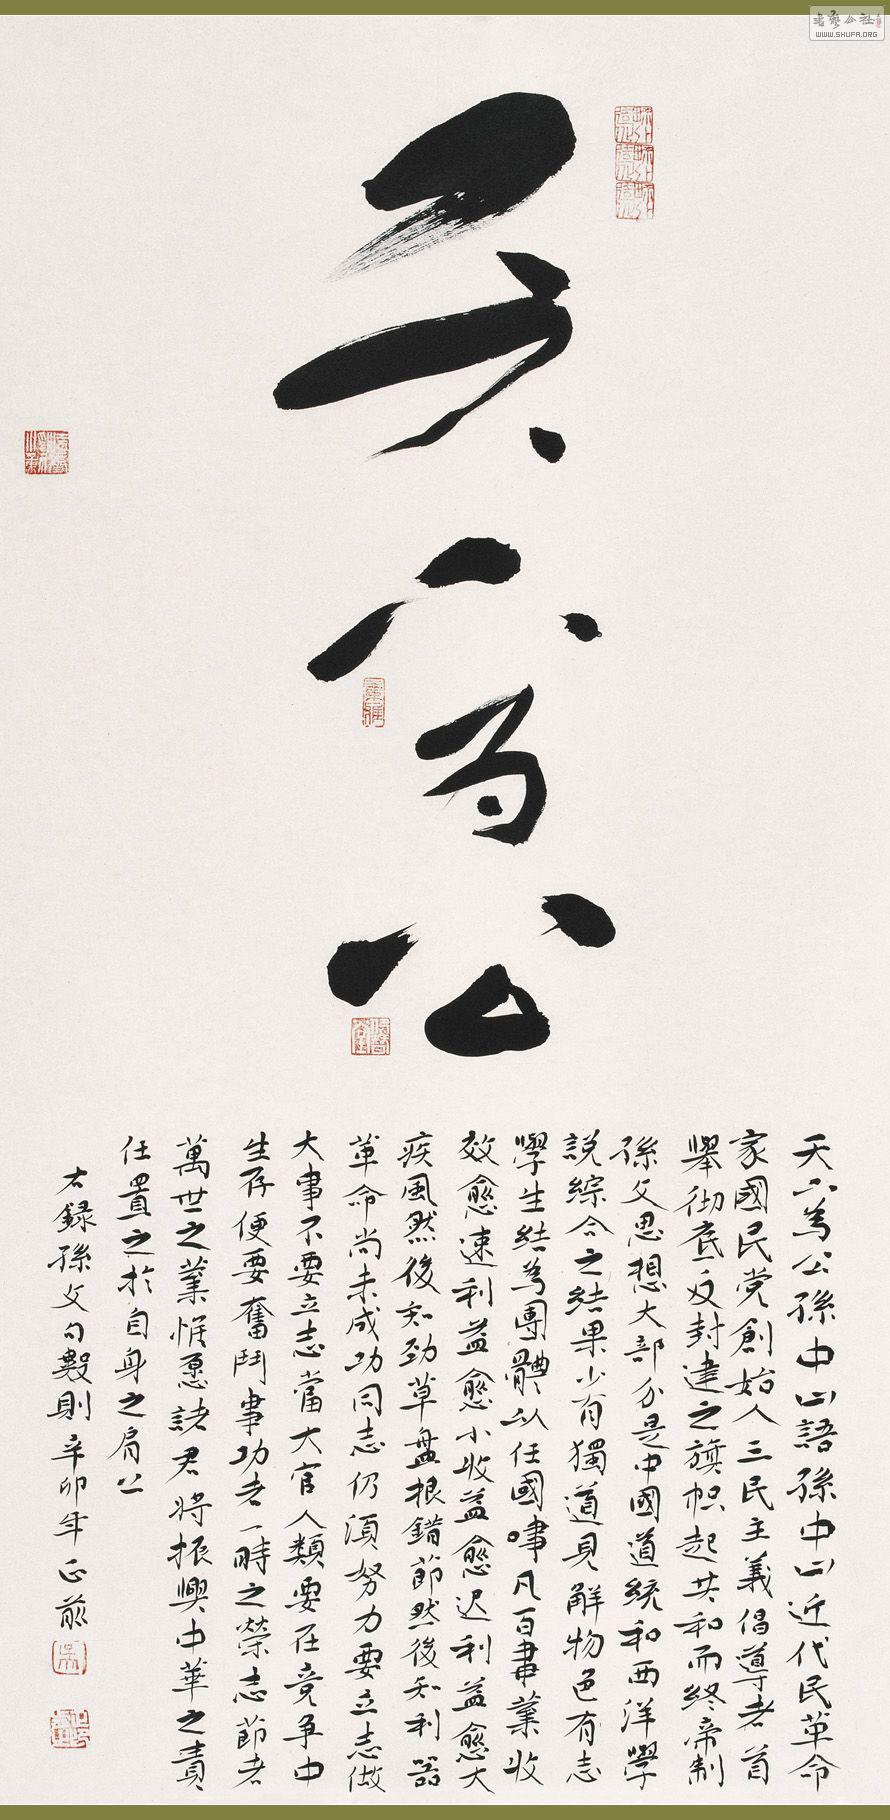 天下為公
天下為公孫中山語孫中山近代民革命
家國民党創始人三民主義倡導者首
舉彻底反封建之旗帜起共和而终帝制
孫文思想大部分是中國道統和西洋學
說綜合之結果少有獨道見解物色有志
學生結為團體以任國事凡百事業收
效愈速利益愈小收益愈迟利益愈大
疾風然後知勁草盘根錯節然後知利器
革命尚未成功同志仍須努力要立志做
大事不要立志當大官人類要在竞争中
生存便要奮鬥事功者一時之榮志節者
萬世之業惟愿諸君将振興中華之責
任置之於自身之肩上
右録孫文句數則辛卯年正前
WWW.SHUFA.ORG